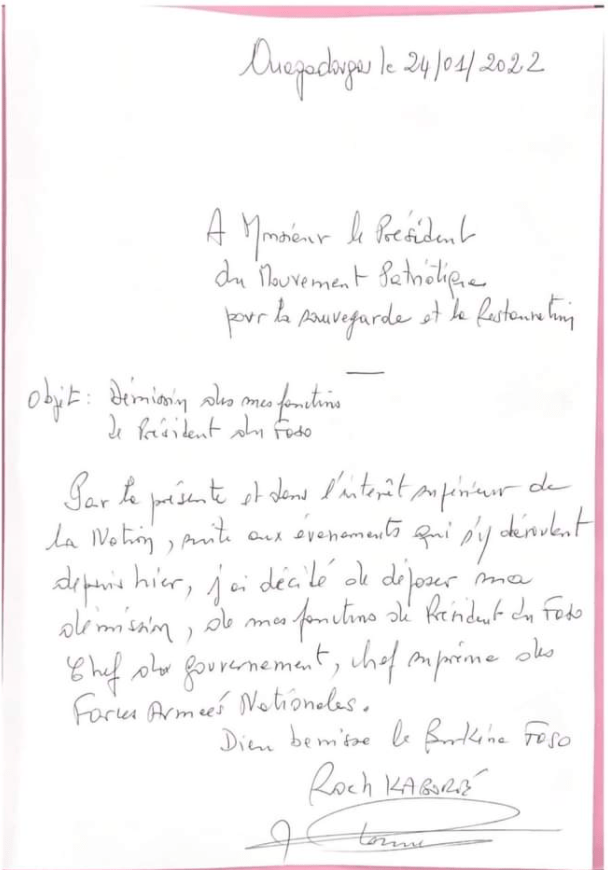 Ouagadougou le 24/01/2022
A Monsieur le Président
du Mouvement Patriotique
pour la sauvegarde et la Restauration
Objet : Démission des mes fonctions
de Président du Faso
Par la présente et dans l'interêt supérieur de
la Nation, suite aux évenements qui s'y déroulent
depuis hier, j'ai décidé de déposer ma
démission, de mes fonctions de Président du Faso
Chef du gouvernement, chef suprême des
Forces Armeés Nationales.
Dieu benisse le Burkina Faso
Roch KABORÉ